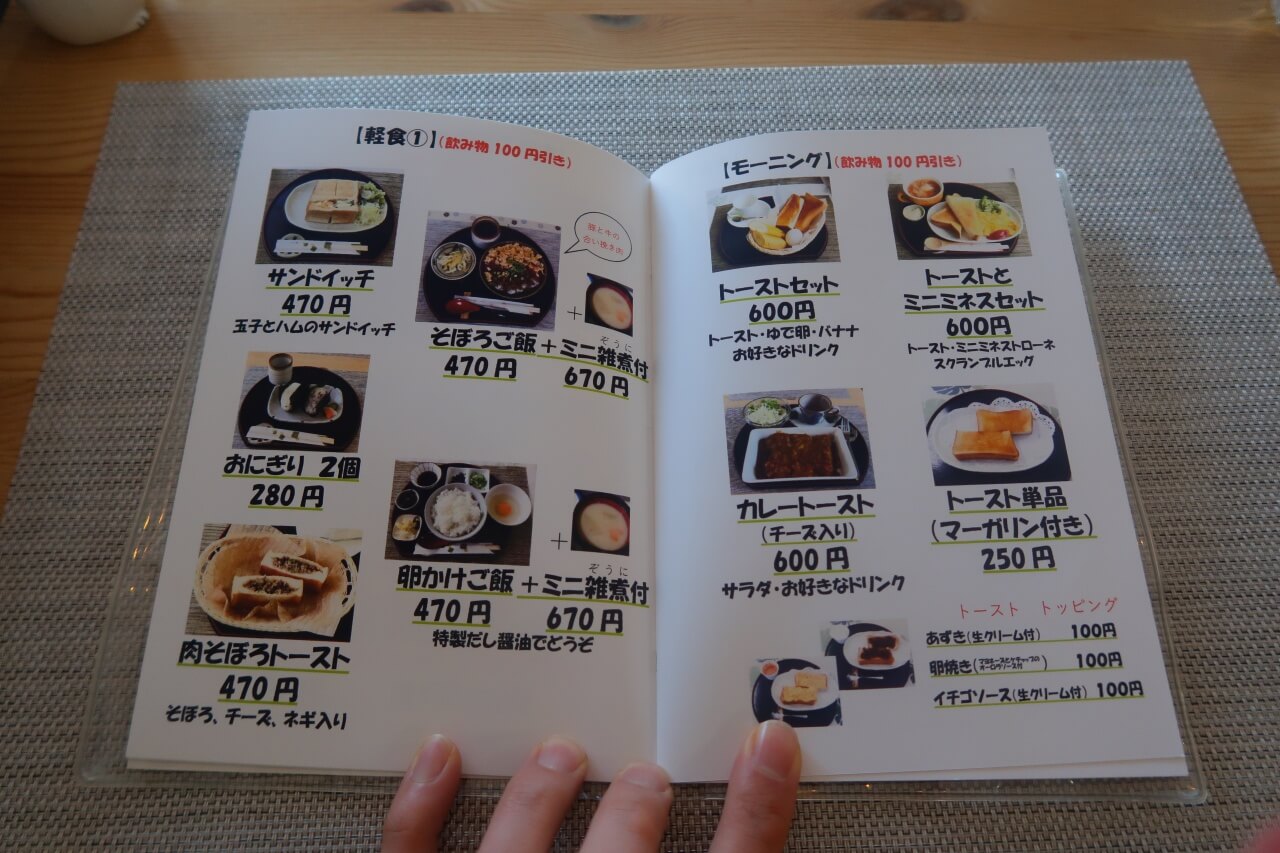 【軽食①】(飲み物100円引き)
サンドイッチ
470円
玉子とハムのサンドイッチ
おにぎり 2個
280円
肉そぼろトースト
470円
そぼろ、チーズ、ネギ入り
豚と牛の
合い挽き肉
そぼろご飯
470円
+
ぞうに
+ミニ雑煮付
670円
卵かけご飯
470円
+
ぞうに
+ミニ雑煮付
670円
特製だし醤油でどうぞ
【モーニング】(飲み物100円引き)
トーストセット
600円
トースト・ゆで卵・バナナ
お好きなドリンク
トーストと
ミニミネスセット
600円
トースト・ミニミネストローネ
スクランブルエッグ
カレートースト
(チーズ入り)
600円
サラダ・お好きなドリンク
トースト単品
(マーガリン付き)
250円
トースト トッピング
あずき(生クリーム付) 100円
卵焼き(マヨネーズとケチャップの
オーロラソース付) 100円
イチゴソース(生クリーム付) 100円